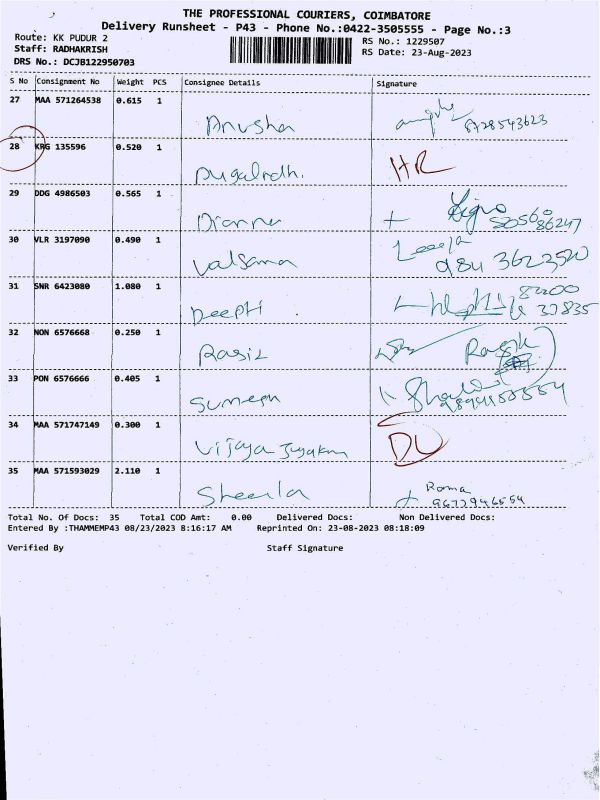 THE PROFESSIONAL COURIERS, COIMBATORE
Delivery Runsheet - P43 - Phone No.:0422-3505555 - Page No.:3
Route: KK PUDUR 2
RS No.: 1229507
Staff: RADHAKRISH
RS Date: 23-Aug-2023
DRS No.: DCJB122950703
S No Consignment No Weight PCS Consignee Details Signature
27 MAA 571264538 0.615 1 Anusha 8728543623
28 KRG 135596 0.520 1 HR
29 DDG 4986503 0.565 1
30 VLR 3197090 0.490 1 Valsama
31 SNR 6423080 1.080 1 Deepti
32 NON 6576668 0.250 1 Rasiz
33 PON 6576666 0.405 1
34 MAA 571747149 0.300 1 Vijaya DL
35 MAA 571593029 2.110 1 Sheela Roma
9677946554
Total No. Of Docs: 35 Total COD Amt: 0.00 Delivered Docs: Non Delivered Docs:
Entered By :THAMMEMP43 08/23/2023 8:16:17 AM Reprinted On: 23-08-2023 08:18:09
Verified By Staff Signature